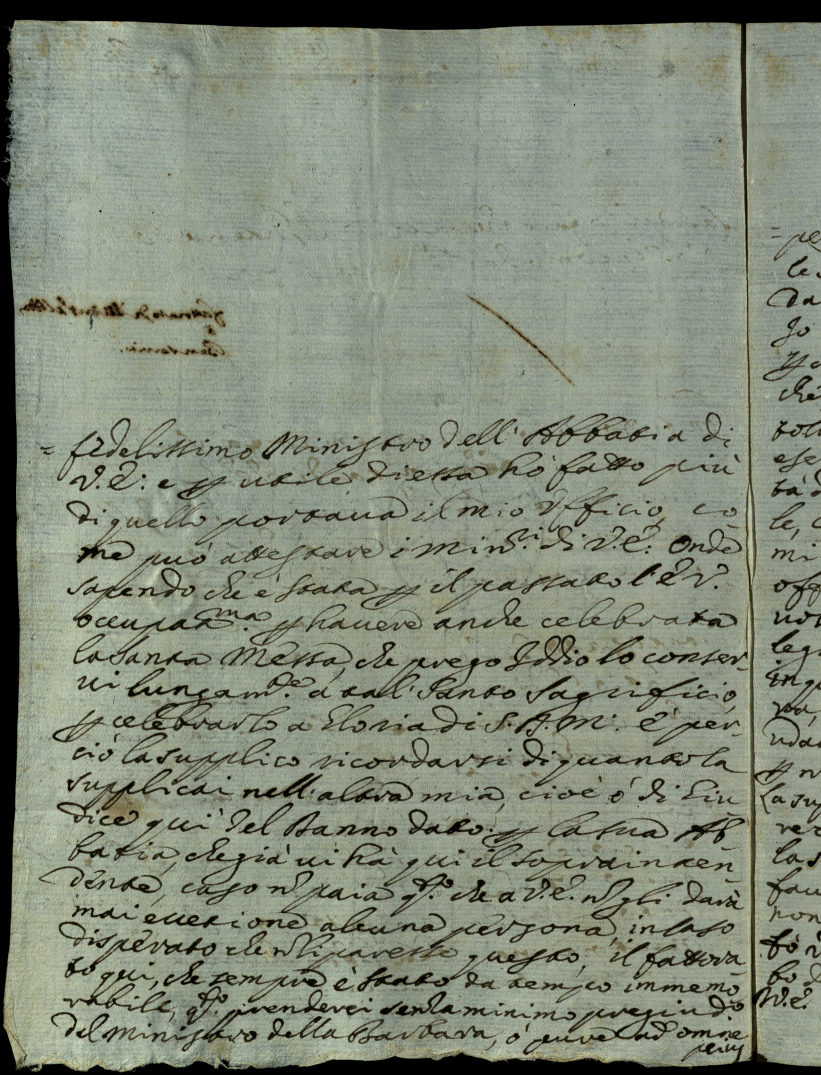 = fedelissimo Ministro dell' Abbatia di
V. E: e p utile di essa hò fatto più
di quello portaua il mio Officio, co
me può attestare i Min:ri di V. E: onde
sapendo che è stata p il passato l' E. V.
occupat:ma p hauere anche celebrata
la Santa Messa, che prego Iddio lo conser-
ui lungam:te à tal' Santo Sagrificio,
p celebrarlo a Gloria di S. D. M: è per-
ciò la supplico ricordarsi di quanto la
supplicai nell' altra mia, cioè ò di Giu
dice qui del Danno dato p la sua Ab
batia, che già ui hà qui il soprainten
dente, caso n paia q:to che a V. E. n gli darà
mai eccetione alcuna persona, in caso
disperato che n li paresse questo, il fattora
to qui, che sempre è stato da tempo immemo
rabile, q:to prenderei senza minimo pregiud:o
del Ministro della Barbara, ò pure ad omne
= pe
le
da
Io
p
che
le, c
mi
off
leg
in q
p n
La su
ver
la s
fau
non
V. E.